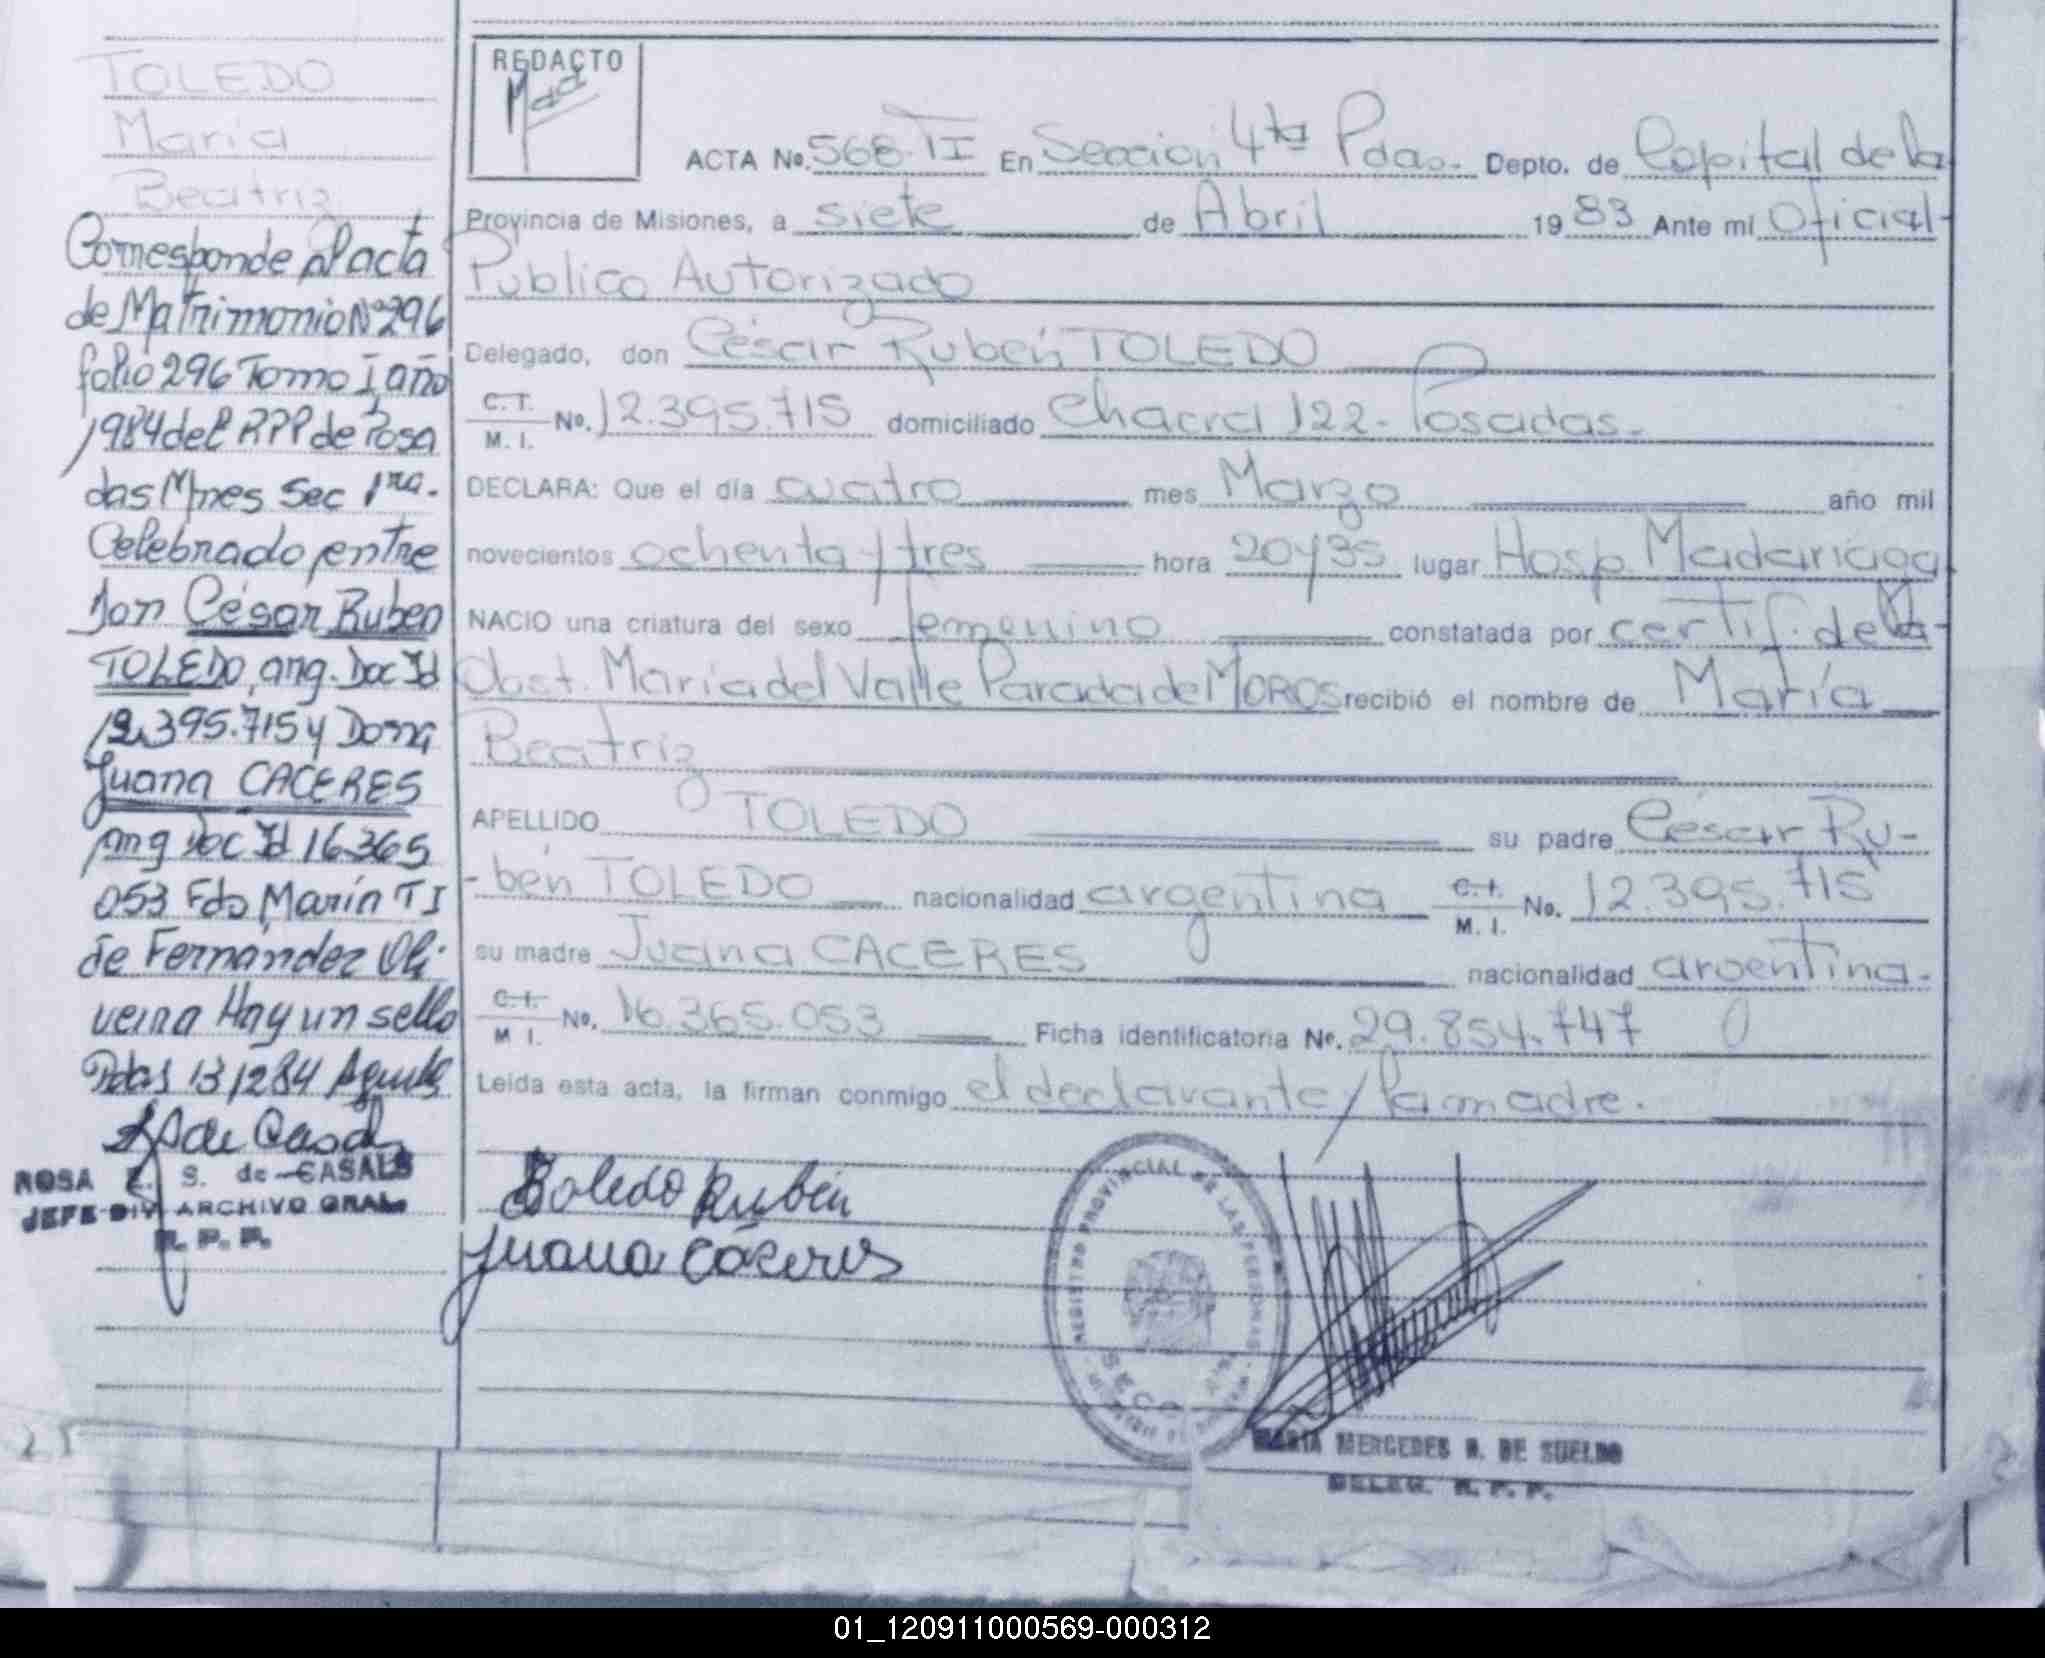 TOLEDO
María
Beatriz
Corresponde al acta
de Matrimonio Nº 296
folio 296 Tomo I, año
1984 del RPP de Posa
das Mnes Sec 1ra.
Celebrado entre
Don César Ruben
TOLEDO, arg. Doc Id
12.395.715 y Doña
Juana CACERES
arg Doc Id 16365
053 Fdo Marín TI
de Fernández Oli
veira Hay un sello
Pdas 13/12/84
ROSA E. S. de CASALS
JEFE DIV ARCHIVO GRAL
R. P. P.
REDACTO
ACTA No. 568-TI En Sección 4ta Pdas. Depto. de Capital de la
Provincia de Misiones, a siete de Abril 1983 Ante mí Oficial
Publico Autorizado
Delegado, don César Rubén TOLEDO
C.I. M. I. No. 12.395.715 domiciliado Chacra 122- Posadas.
DECLARA: Que el día cuatro mes Marzo año mil
novecientos ochenta y tres hora 20y35 lugar Hosp. Madariaga
NACIO una criatura del sexo femenino constatada por certif. de la
Obst. María del Valle Parada de MOROS recibió el nombre de María
Beatriz
APELLIDO TOLEDO su padre César Ru-
-bén TOLEDO nacionalidad argentina C.I. M. I. No. 12.395.715
su madre Juana CACERES nacionalidad argentina.
C.I. M I. No. 16.365.053 Ficha identificatoria No. 29.854.747
Leída esta acta, la firman conmigo el declarante/la madre.
Toledo Rubén
Juana Cáceres
REGISTRO PROVINCIAL DE LAS PERSONAS
SECC
MARIA MERCEDES R. DE SUELDO
DELEG. R. P. P.
01_120911000569-000312